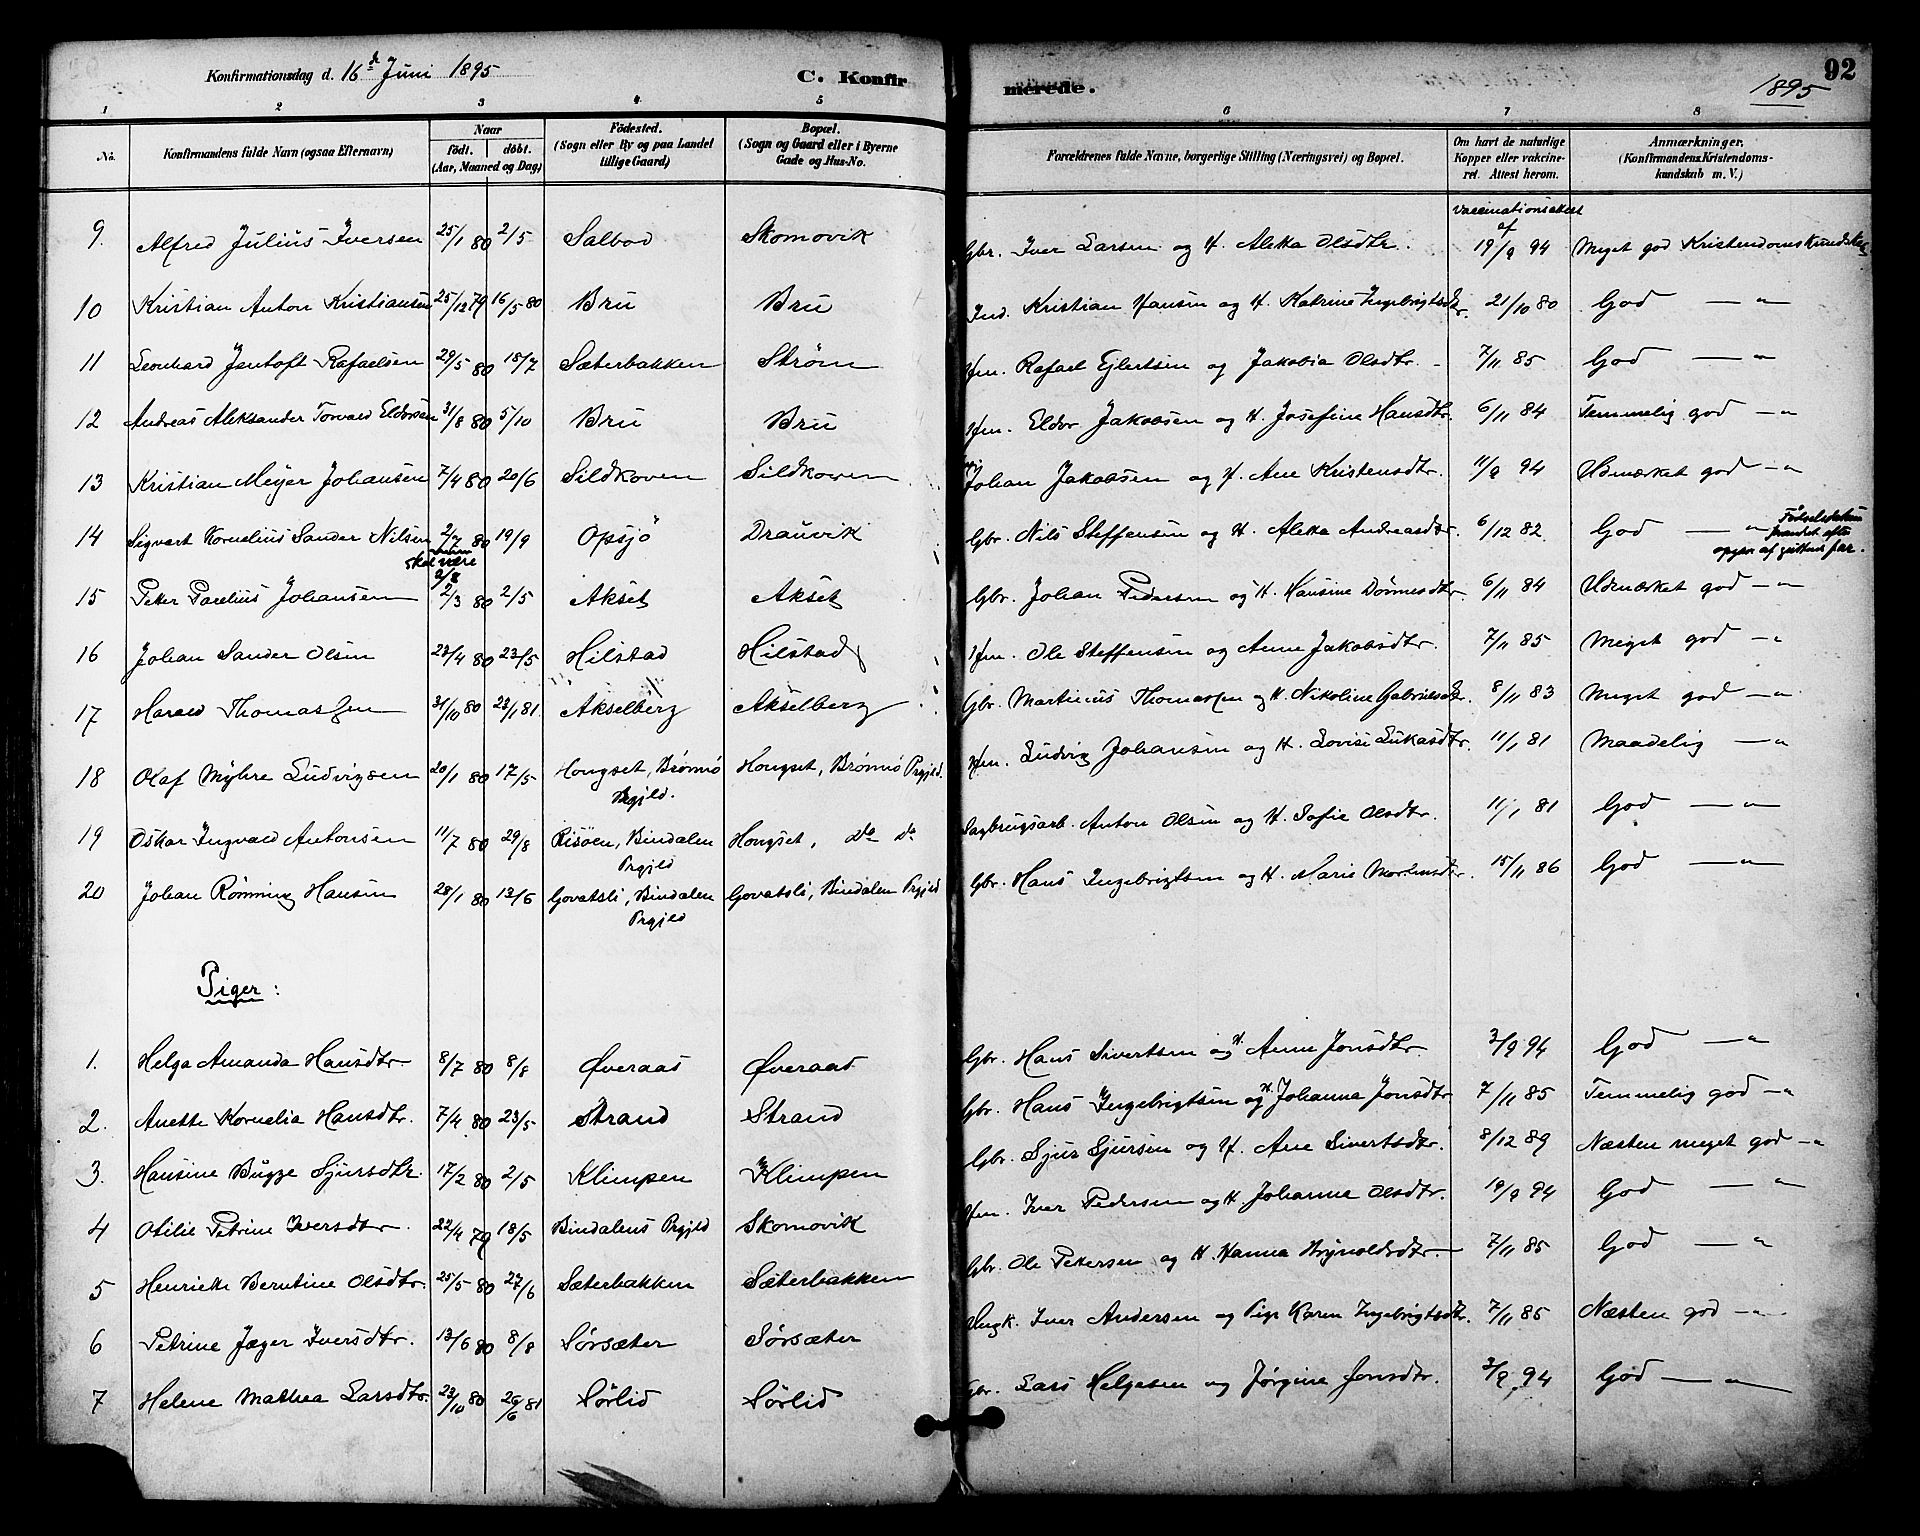 Konfirmationsdag d. 16de Juni 1895
C. Konfir
merede.
92
1895
1 2 3 4 5 6 7 8
No. Konfirmandens fulde Navn (ogsaa Efternavn) Naar födt. döbt. (Aar, Maaned og Dag) Födested. (Sogn eller By og paa Landet tillige Gaard) Bopæl. (Sogn og Gaard eller i Byerne Gade og Hus-No.
Forældrenes fulde Navne, borgerlige Stilling (Næringsvei) og Bopæl. Om havt de naturlige Kopper eller vakcineret. Attest herom. Anmærkninger. (Konfirmandens Kristendomskundskab m. V.)
Vaccinationsattest af
9. Alfred Julius Iversen 25/1 80 2/5 Salbod Skomovik Gbr. Iver Larsen og H. Aletta Olsdtr. 19/9 94 Meget god Kristendomskundskab
10 Kristian Anton Kristiansen 25/12 79 16/5 80 Bru Bru Ind. Kristian Hansen og H. Katrine Ingebrigtsdtr. 21/10 80 God — " 
11 Leonhard Jentoft Rafaelsen 29/5 80 18/7 Sæterbakken Strøm Hm. Rafael Ejlertsen og Jakobia Olsdtr. 7/11 85 God — "
12 Andreas Aleksander Torvald Eldorsen 31/8 80 5/10 Bru Bru Hm. Eldor Jakobsen og H. Josefine Hansdtr. 6/11 84 Temmelig god — "
13 Kristian Meyer Johansen 7/4 80 20/6 Sildkoven Sildkoven Johan Jakobsen og H. Ane Kristensdtr. 11/9 94 Udmærket god — "
14 Sigvart Kornelius Sander Nilsen 2/7 80 19/9 Opsjö Drauvik Gbr. Nils Steffensen og H. Aletta Andreasdtr. 6/12 82 God — " Fødselsdatum
skal være 2/8
opgav af
15 Petter Parelius Johansen 2/3 80 2/5 Akset Akset Gbr. Johan Pedersen og H. Hansine Dønnesdtr. 6/11 84 Udmærket god — "
16 Johan Sander Olsen 23/4 80 23/5 Hilstad Hilstad Hm. Ole Steffensen og Anne Jakobsdtr. 7/11 85 Meget god — "
17 Harald Thomassen 31/10 80 23/1 81 Akselberg Akselberg Gbr. Martinus Thomassen og H. Nikoline Gabrielsdtr. 8/11 83 Meget god — "
18 Olaf Myhre Ludvigsen 20/1 80 17/5 Hongset, Brønnö Prgjeld. Hongset, Brønnö Prgjeld. Hm. Ludvig Johansen og H. Lovise Lukasdtr. 11/1 81 Maadelig — "
19 Oskar Ingvald Antonsen 11/7 80 29/8 Risöen, Bindalen Prgjeld Hongset, do do Sagbrugsarb. Anton Olsen og H. Sofie Olsdtr. 11/1 81 God — "
20 Johan Rønning Hansen 28/1 80 13/6 Govatsli, Bindalen Prgjeld Govatsli, Bindalen Prgjeld Gbr. Hans Ingebrigtsen og H. Maris Mortensdtr. 15/11 86 God — "
Piger:
1. Helga Amanda Hansdtr. 8/7 80 8/8 Øveraas Øveraas Gbr. Hans Sivertsen og H. Anne Jonsdtr. 3/9 94 God — "
2. Anette Kornelia Hansdtr. 7/4 80 23/5 Strand Strand Gbr. Hans Ingebrigtsen og H. Johanna Jonsdtr. 7/11 85 Temmelig god — "
3. Hansine Bugge Sjursdtr. 17/2 80 2/5 Klimpen Klimpen Gbr. Sjur Sjursen og H. Ane Sivertsdtr. 8/12 89 Næsten meget god — "
4 Otilie Petrine Iversdtr. 22/4 79 18/5 Bindalens Prgjeld Skomovik Hm. Iver Pedersen og H. Johanne Olsdtr. 19/9 94 God — "
5 Henriette Berntine Olsdtr. 25/5 80 27/6 Sæterbakken Sæterbakken Gbr. Ole Pettersen og H. Hanna Brynoldsdtr. 7/11 85 God — "
6 Petrine Jæger Iversdtr. 13/6 80 8/8 Sørsæter Sørsæter Ungk. Iver Andersen og Pige Karen Ingebrigtsdtr. 7/11 85 Næsten god — "
7 Helene Mathea Larsdtr. 23/10 80 26/6 81 Sørlid Sørlid Gbr. Lars Helgesen og Jørgine Jonsdtr. 3/9 94 God — "